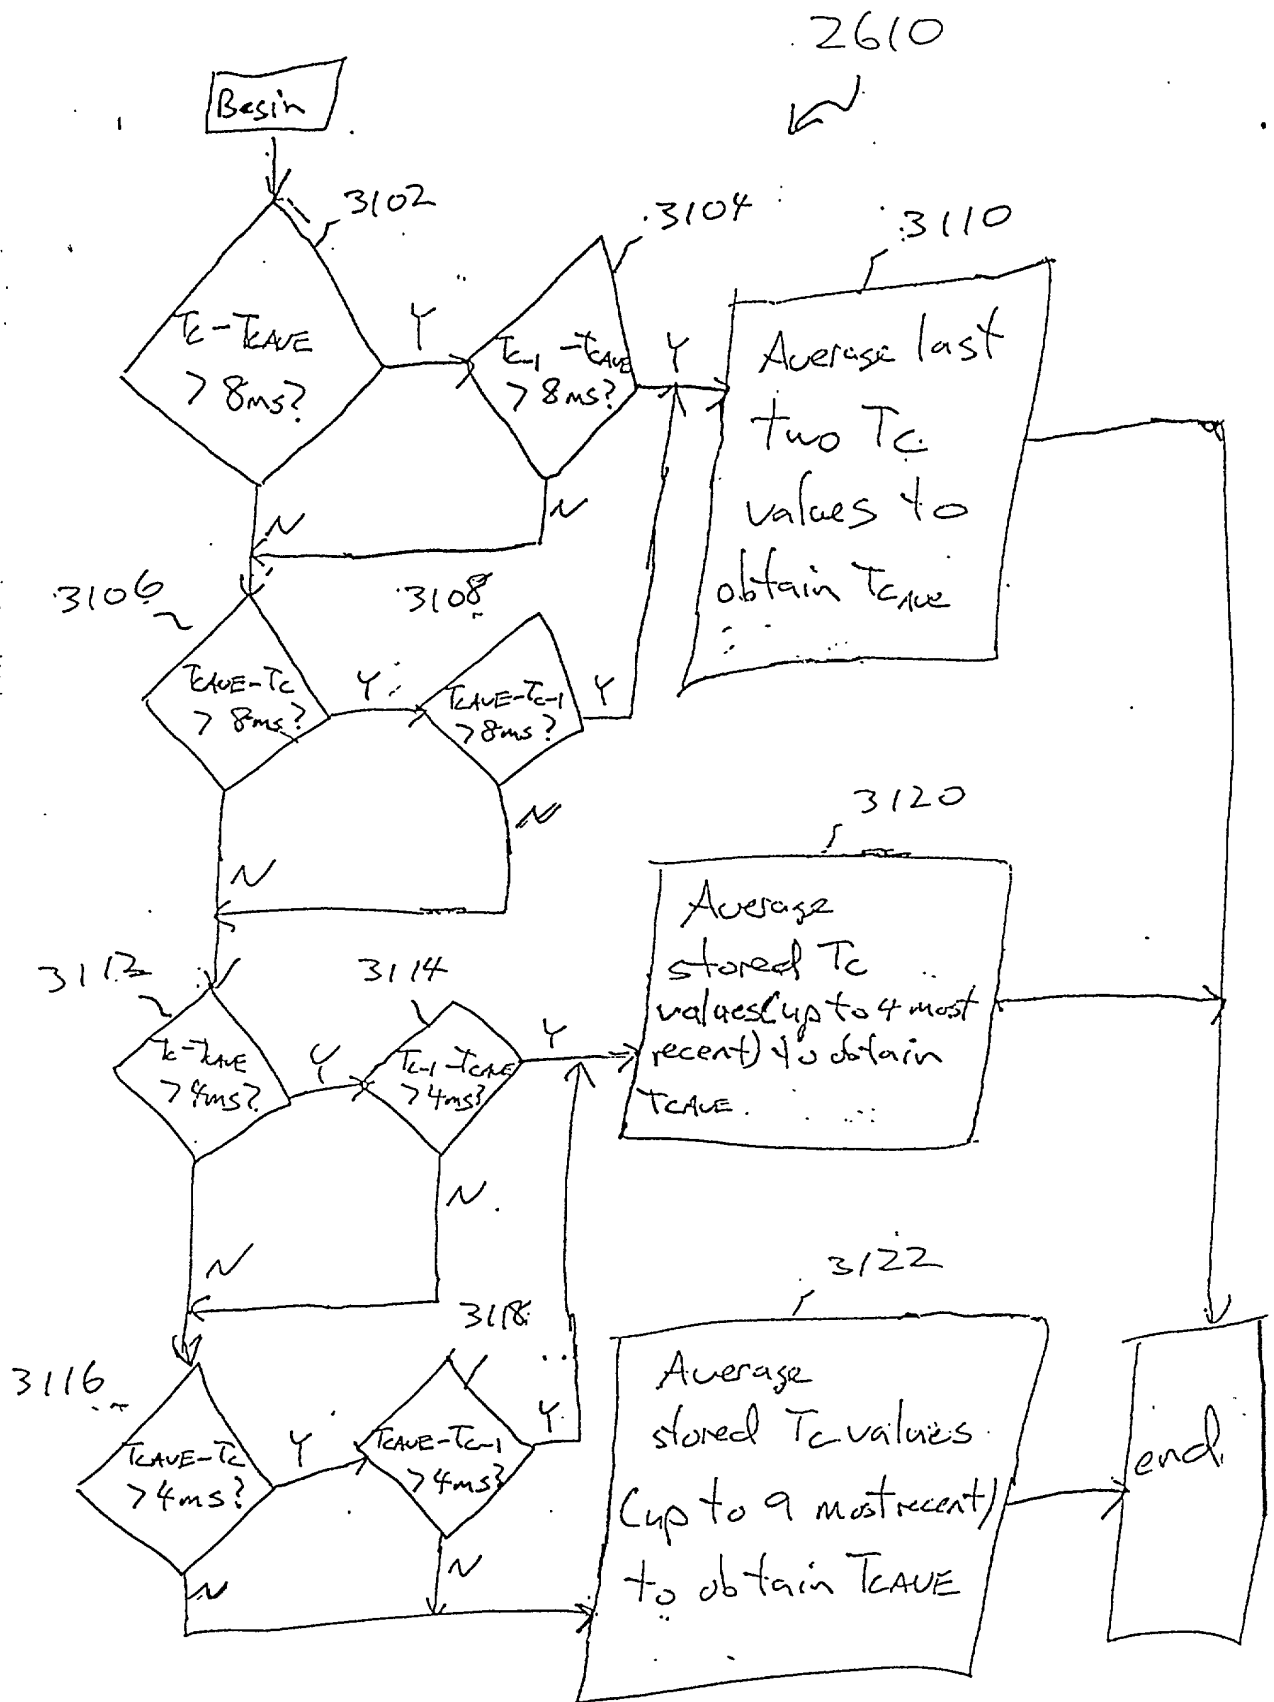 2610
Begin
3102
3104
3110
Tc-TcAVE
> 8ms?
Y
Tc-1 -TcAVE
> 8ms?
Y
Average last
two Tc
values to
obtain TcAVE
N
N
3106
3108
TcAVE-Tc
> 8ms?
Y
TcAVE-Tc-1
> 8ms?
Y
N
N
3120
Average
stored Tc
values(up to 4 most
recent) to obtain
TcAVE.
3112
3114
Tc-TcAVE
> 4ms?
Y
Tc-1 -TcAVE
> 4ms?
Y
N
N
3122
3116
3118
TcAVE-Tc
> 4ms?
Y
TcAVE-Tc-1
> 4ms?
Y
N
N
Average
stored Tc values
(up to 9 most recent)
to obtain TcAVE
end